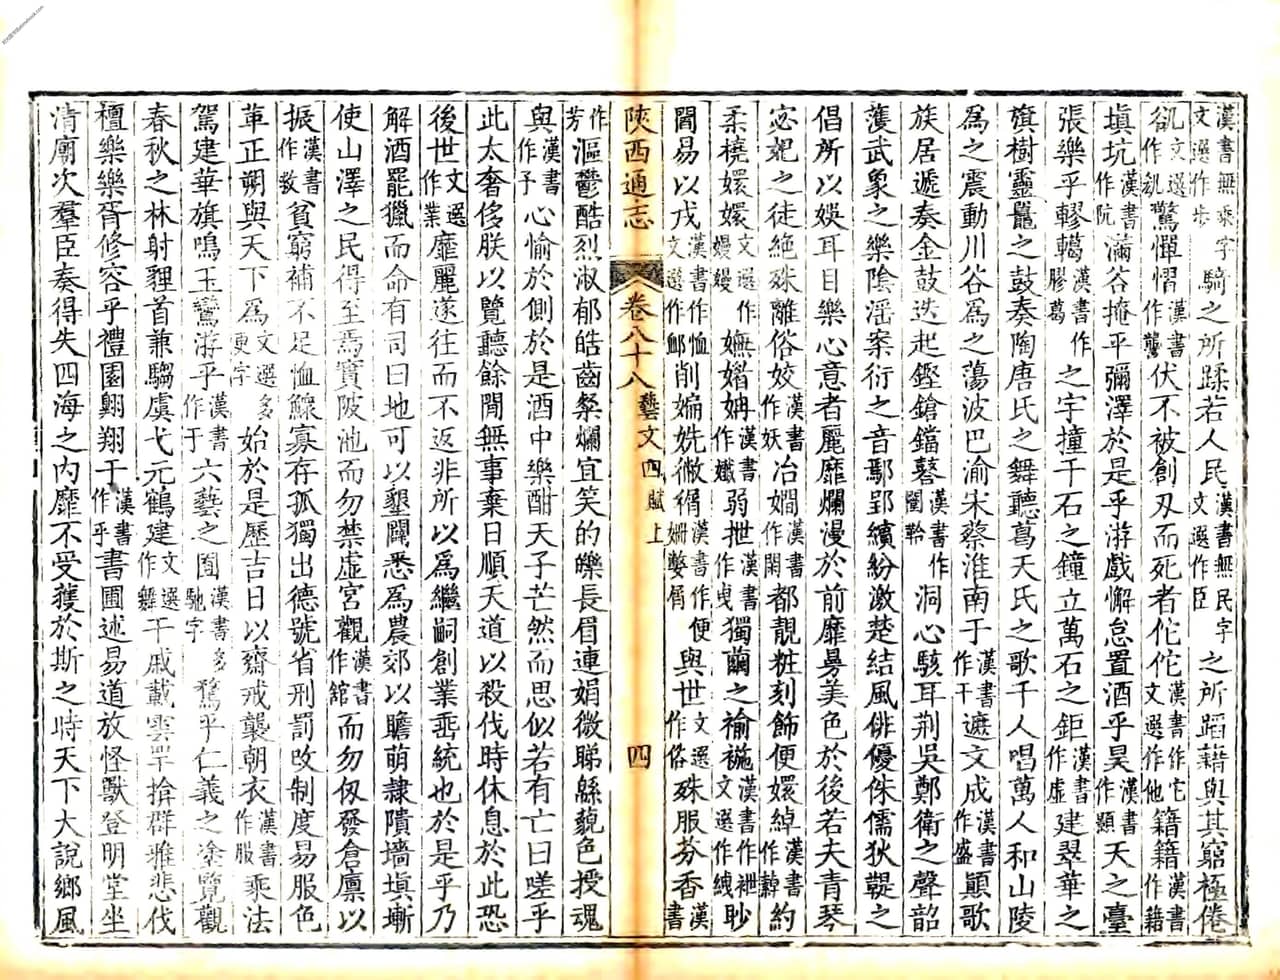 漢書無乘字文選作步騎之所蹂若人民漢書無民字文選作臣之所蹈藉與其窮極倦
𠨞文選作㕁驚憚慴漢書作讋伏不被創刃而死者佗佗漢書作它文選作他籍籍漢書作籍
填坑漢書作阬滿谷掩平彌澤於是乎游戲懈怠置酒乎昊漢書作顥天之臺
張樂乎轇轕漢書作膠葛之宇撞千石之鐘立萬石之鉅漢書作虡建翠華之
旗樹靈鼉之鼓奏陶唐氏之舞聽葛天氏之歌千人唱萬人和山陵
為之震動川谷為之蕩波巴渝宋蔡淮南于漢書作干遮文成漢書作盛顛歌
族居遞奏金鼓迭起鏗鎗鐺鼛漢書作闛鞈洞心駭耳荆吳鄭衛之聲韶
濩武象之樂陰淫案衍之音鄢郢繽紛激楚結風俳優侏儒狄鞮之
倡所以娛耳目樂心意者麗靡爛漫於前靡曼美色於後若夫青琴
宓妃之徒絶殊離俗姣漢書作妖冶嫺漢書作閑都靚粧刻飾便嬛綽漢書作繛約
柔橈嬛嬛文選作嫚嫚嫵媚姌漢書作孅弱抴漢書作曳獨繭之褕袘漢書作袣文選作絏眇
閻易以戌漢書作恤文選作卹削媥姺徶㣯漢書作便姍嫳屑與世文選作俗殊服芬香漢書
陝西通志 卷八十八 藝文四 賦上 四
作芳漚鬱酷烈淑郁皓齒粲爛宜笑的皪長眉連娟微睇緜藐色授魂
與漢書作予心愉於側於是酒中樂酣天子芒然而思似若有亡曰嗟乎
此太奢侈朕以覽聽餘閒無事棄日順天道以殺伐時休息於此恐
後世文選作葉靡麗遂往而不返非所以為繼嗣創業垂統也於是乎乃
解酒罷獵而命有司曰地可以墾闢悉為農郊以贍萌隸隤墻填塹
使山澤之民得至焉實陂池而勿禁虛宮觀漢書作館而勿仞發倉廩以
振漢書作救貧窮補不足恤鰥寡存孤獨出德號省刑罰改制度易服色
革正朔與天下為文選多更字始於是歷吉日以齋戒襲朝衣漢書作服乘法
駕建華旗鳴玉鸞游乎漢書作于六藝之囿漢書多馳字騖乎仁義之塗覽觀
春秋之林射貍首兼騶虞弋元鶴建文選作舞干戚載雲䍐揜群雅悲伐
檀樂樂胥修容乎禮園翺翔于漢書作乎書圃述易道放怪獸登明堂坐
清廟次羣臣奏得失四海之內靡不受獲於斯之時天下大說鄉風